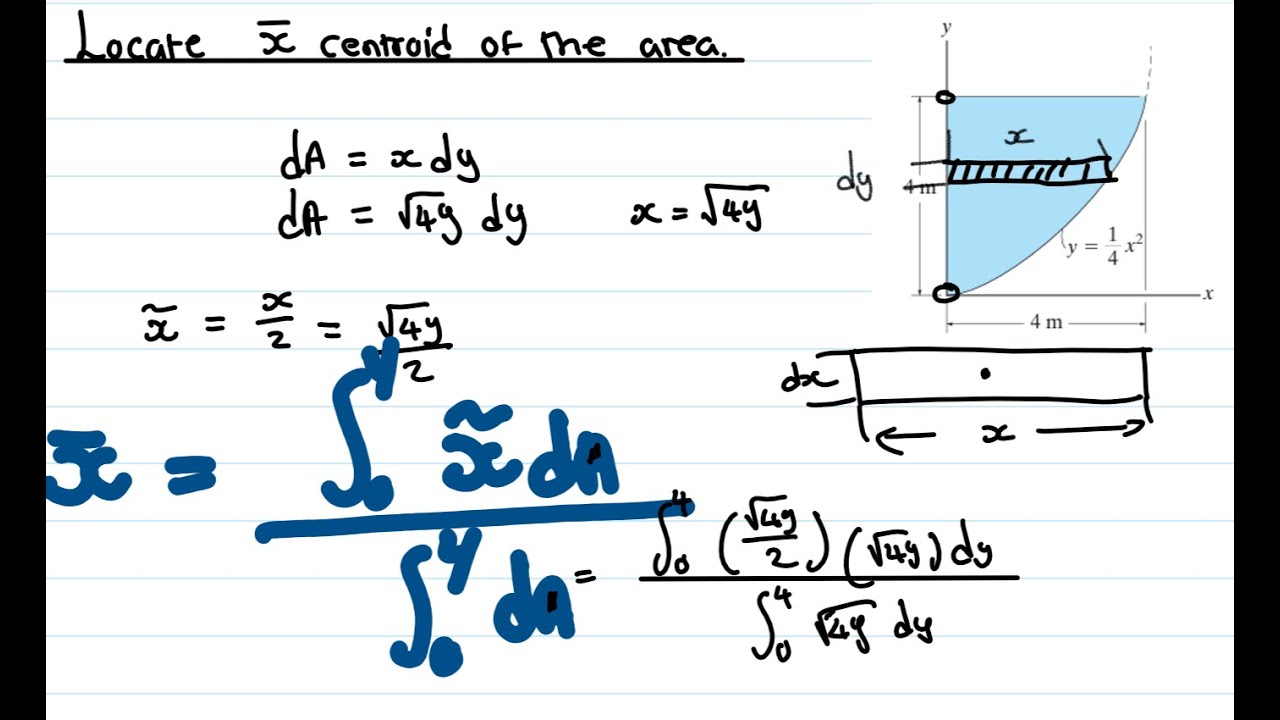 Locate x̄ centroid of the area.
dA = x dy
dA = √4y dy
x = √4y
x̃ = x/2 = √4y/2
x̄ = ∫₀⁴ x̃ dA / ∫₀⁴ dA = ∫₀⁴ (√4y/2) (√4y) dy / ∫₀⁴ √4y dy
y
x
dy
4 m
y = 1/4 x²
x
4 m
dx
x